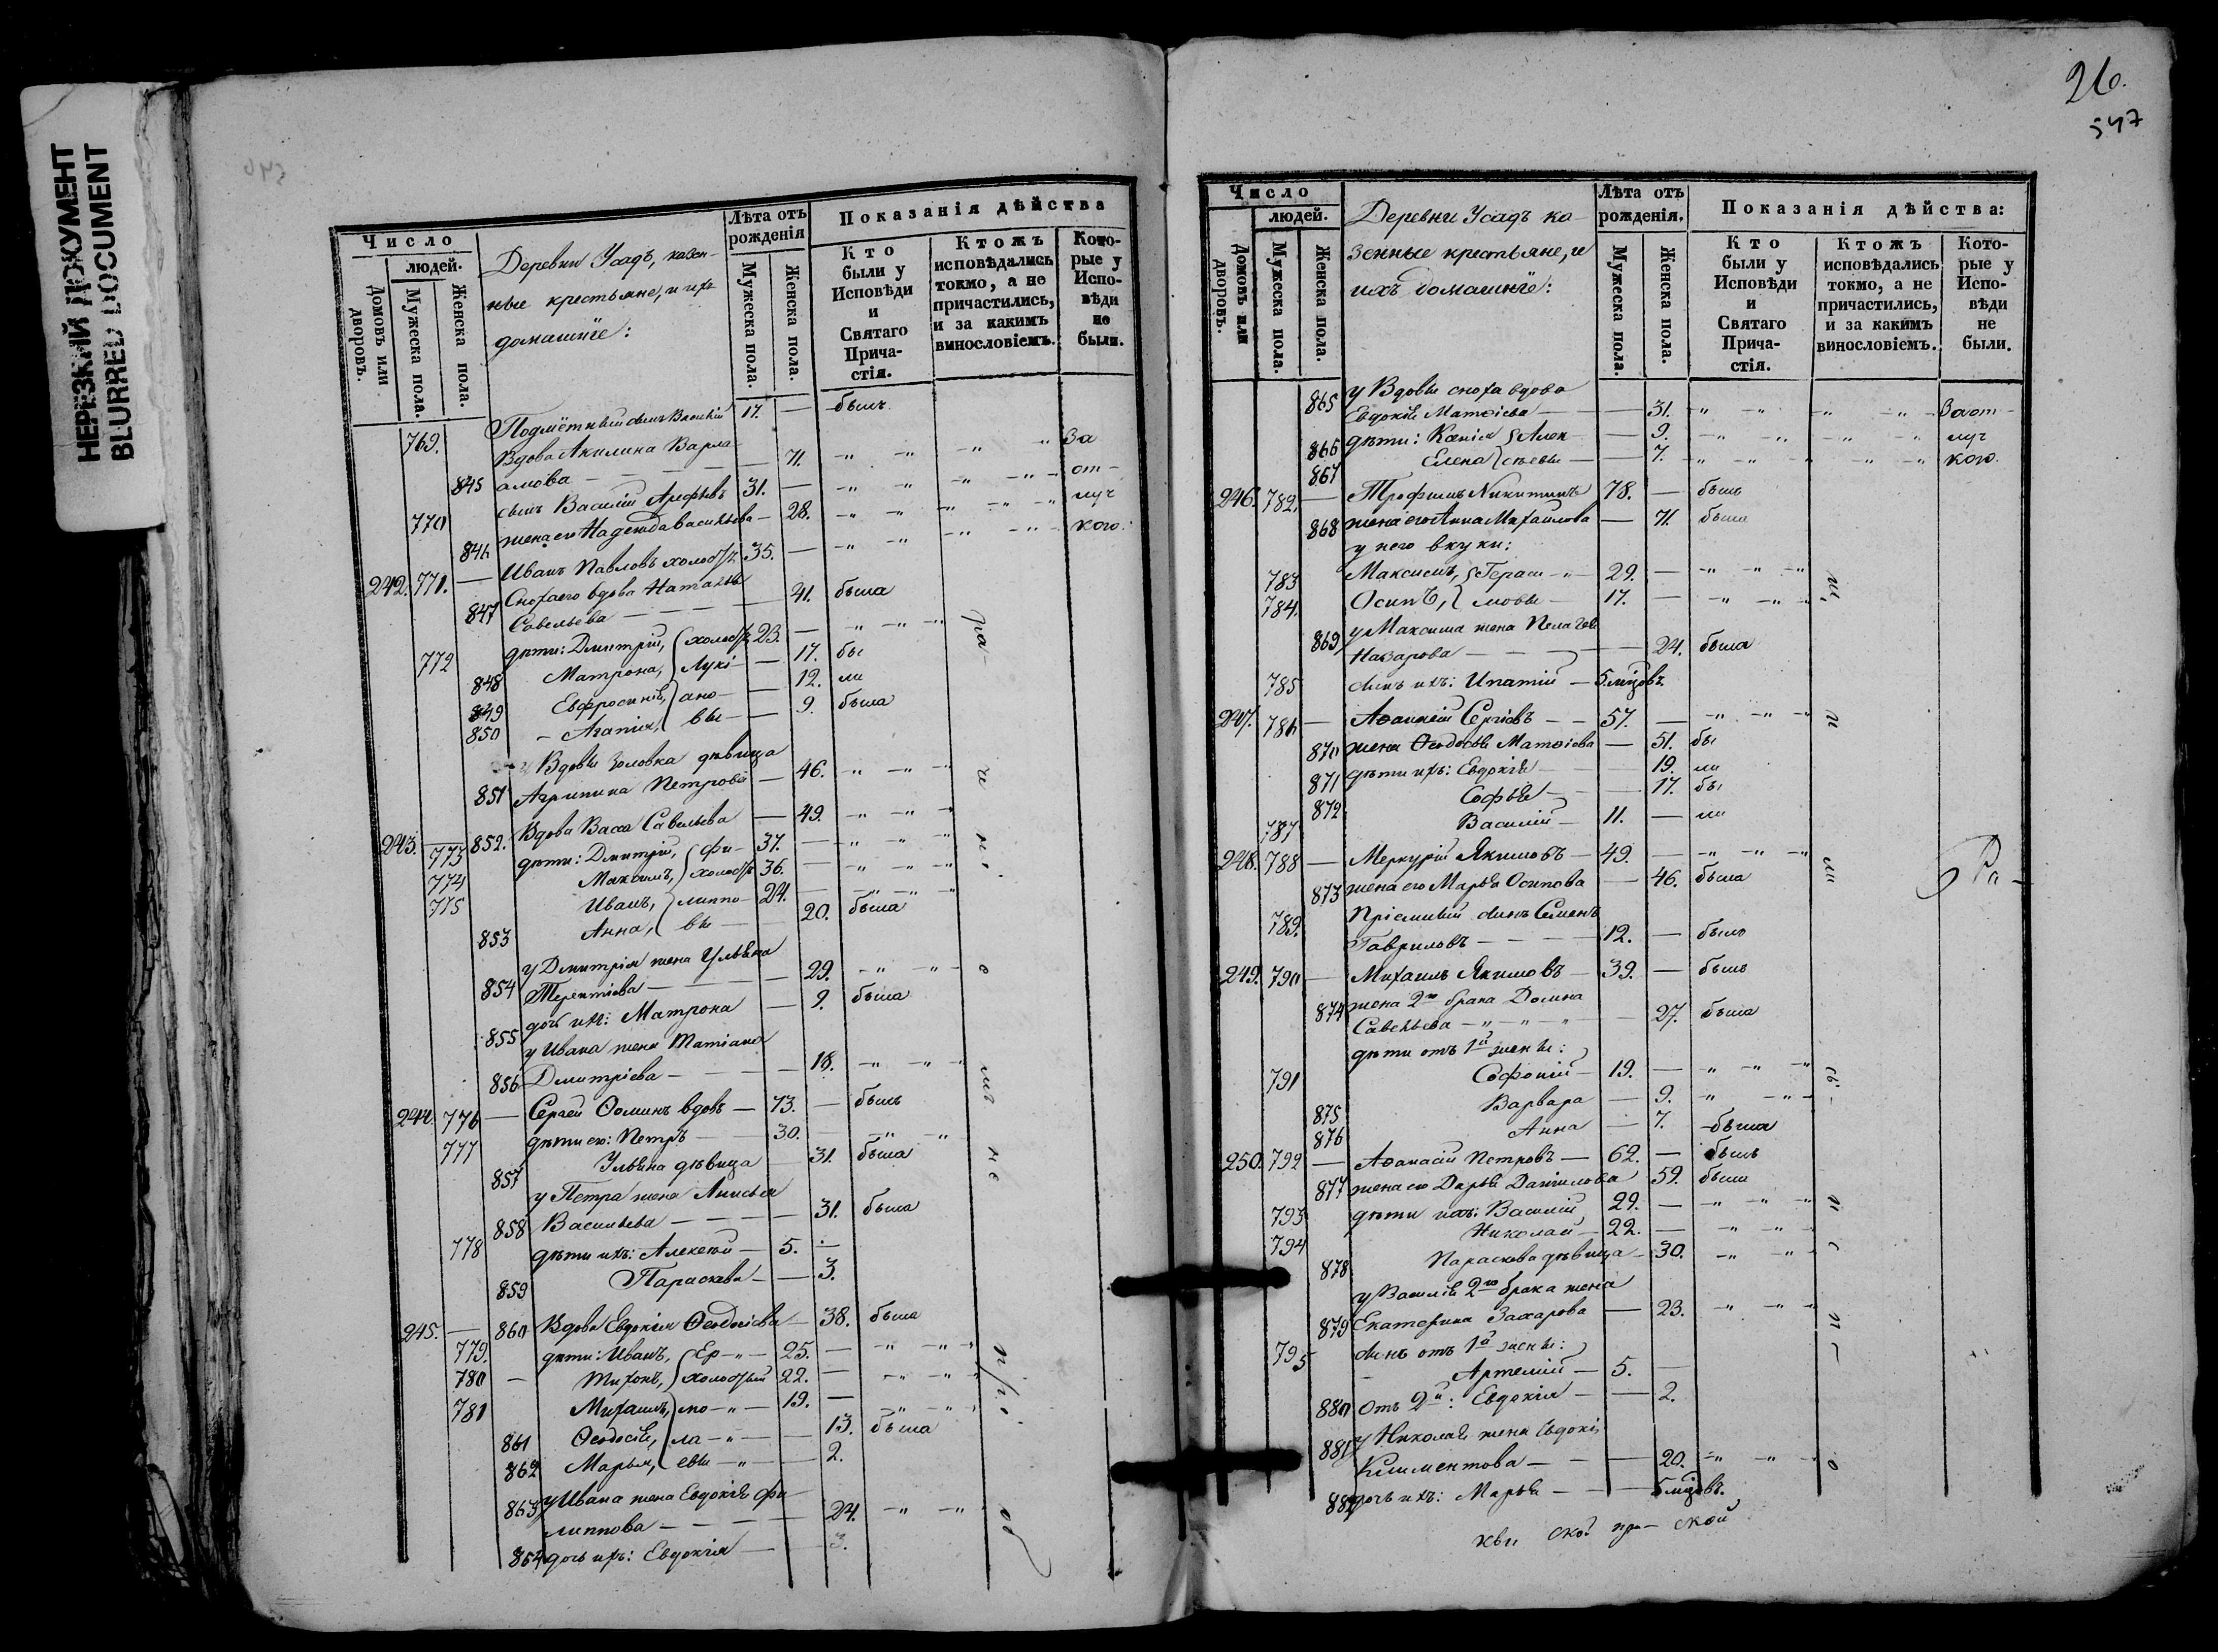 НЕРЕЗКИЙ ДОКУМЕНТ
BLURRED DOCUMENT
Число
людей.
Домовъ или дворовъ.
Мужеска пола.
Женска пола.
Деревни Усадъ, казен-
ные крестьяне, и ихъ
домашніе:
Лѣта отъ рожденія
Мужеска пола.
Женска пола.
Показанія дѣйства
Кто были у Исповѣди и Святаго Прича-стія.
Ктожъ исповѣдались токмо, а не причастились, и за какимъ винословіемъ.
Кото-рые у Испо-вѣди не были.
769. Подмётный сынъ Василій 17. — былъ
Вдова Акилина Варла-
845 амова — 71. За
770 сынъ Василій Арефьевъ 31. — от-
846 жена его Надежда Васильева — 28. луч
242. 771. — Иванъ Павловъ холостъ 35. — кою.
Сноха его вдова Наталья
847 Савельева — 41. была
772 дѣти: Дмитрій, холостъ 23. —
848 Матрона, Лукі — 17. бы
849 Евфросинія, ано — 12. ли
850 Агапія, вы — 9. была
у Вдовы золовка дѣвица
851 Агрипина Петрова — 46.
243. — 852. Вдова Васса Савельева — 49.
773 дѣти: Дмитрій, фи- 37. —
774 Максимъ, холостъ 36. —
775 Иванъ, липпо- 24. —
853 Анна, вы — 20. была
у Дмитрія жена Ульяна
854 Терентіева — 29.
855 дочь ихъ: Матрона — 9. была
у Ивана жена Татіана
856 Дмитріева — 18.
244. 776 — Сергей Ѳоминъ вдовъ — 73. — былъ
777 дѣти его: Петръ — 30. —
857 Ульяна дѣвица 31. была
у Петра жена Анисья
858 Васильева — 31. была
778 дѣти ихъ: Алексѣй — 5. —
859 Параскева — 3.
245. — 860 Вдова Евдокія Ѳеодосіева — 38. была
779. дѣти: Иванъ, Ер — 25. —
780 — Тихонъ, холостый 22. —
781 Михаилъ, мо — 19. —
861 Ѳеодосія, ла — 13. была
862 Марья, евы — 2.
863 у Ивана жена Евдокія Фи-
липпова — 24.
864 дочь ихъ: Евдокія — 3.
26.
547
Число
людей.
Домовъ или дворовъ.
Мужеска пола.
Женска пола.
Деревни Усадъ ка-
зенные крестьяне, и
ихъ домашніе:
Лѣта отъ рожденія.
Мужеска пола.
Женска пола.
Показанія дѣйства:
Кто были у Исповѣди и Святаго Прича-стія.
Ктожъ исповѣдались токмо, а не причастились, и за какимъ винословіемъ.
Кото-рые у Испо-вѣди не были.
865 у Вдовы сноха вдова
Евдокія Матѳіева — 31. За от-
866 дѣти: Ксенія Алек- — 9. луч
867 Елена сѣевы — 7. кою.
246. 782. — Трофимъ Никитинъ 78. — былъ
868 жена его Анна Михаилова — 71. была
у него внуки:
783 Максимъ, Гераси 29. —
784. Осипъ, мовы — 17. —
869 у Максима жена Пелагея
Назарова — 24. была
785 сынъ ихъ: Ипатій — 5 мцовъ.
247. 786 — Аѳанасій Сергіевъ — 57. —
870 жена Ѳеодосья Матѳіева — 51. бы
871 дѣти ихъ: Евдокія — 19. ли
872 Софья — 17. бы
787 Василій — 11. — ли
248. 788 — Меркурій Якимовъ — 49. —
873 жена его Марья Осипова — 46. была
789. Пріемный сынъ Семенъ
Гавриловъ — 12. — былъ
249. 790 — Михаилъ Якимовъ — 39. — былъ
874 жена 2го брака Домна
Савельева — 27. была
дѣти отъ 1й жены:
791 Софоній — 19. —
875 Варвара — 9.
876 Анна — 7. была
250. 792 — Аѳанасій Петровъ — 62. — былъ
877 жена его Дарья Даніилова 59. была
793 дѣти ихъ: Василій 29. —
794 Николай — 22. —
878 Параскева дѣвица — 30.
у Василія 2го брака жена
879 Екатерина Захарова — 23.
795 сынъ отъ 1й жены:
Артемій — 5. —
880 отъ 2й: Евдокія — 2.
881 у Николая жена Евдокія
Климентова — 20.
882 дочь ихъ: Марья — 5 мцовъ.